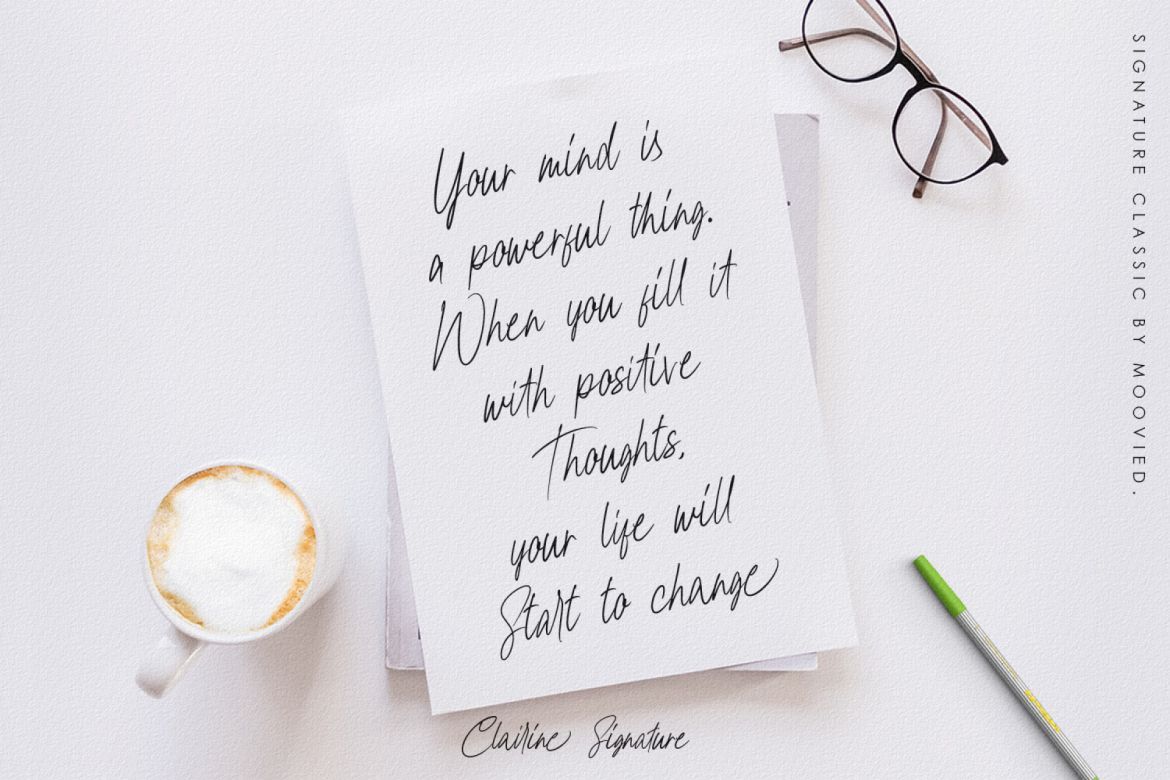 Your mind is
a powerful thing.
When you fill it
with positive
Thoughts,
your life will
Start to change
Clairine Signature
SIGNATURE CLASSIC BY MOOVIED.